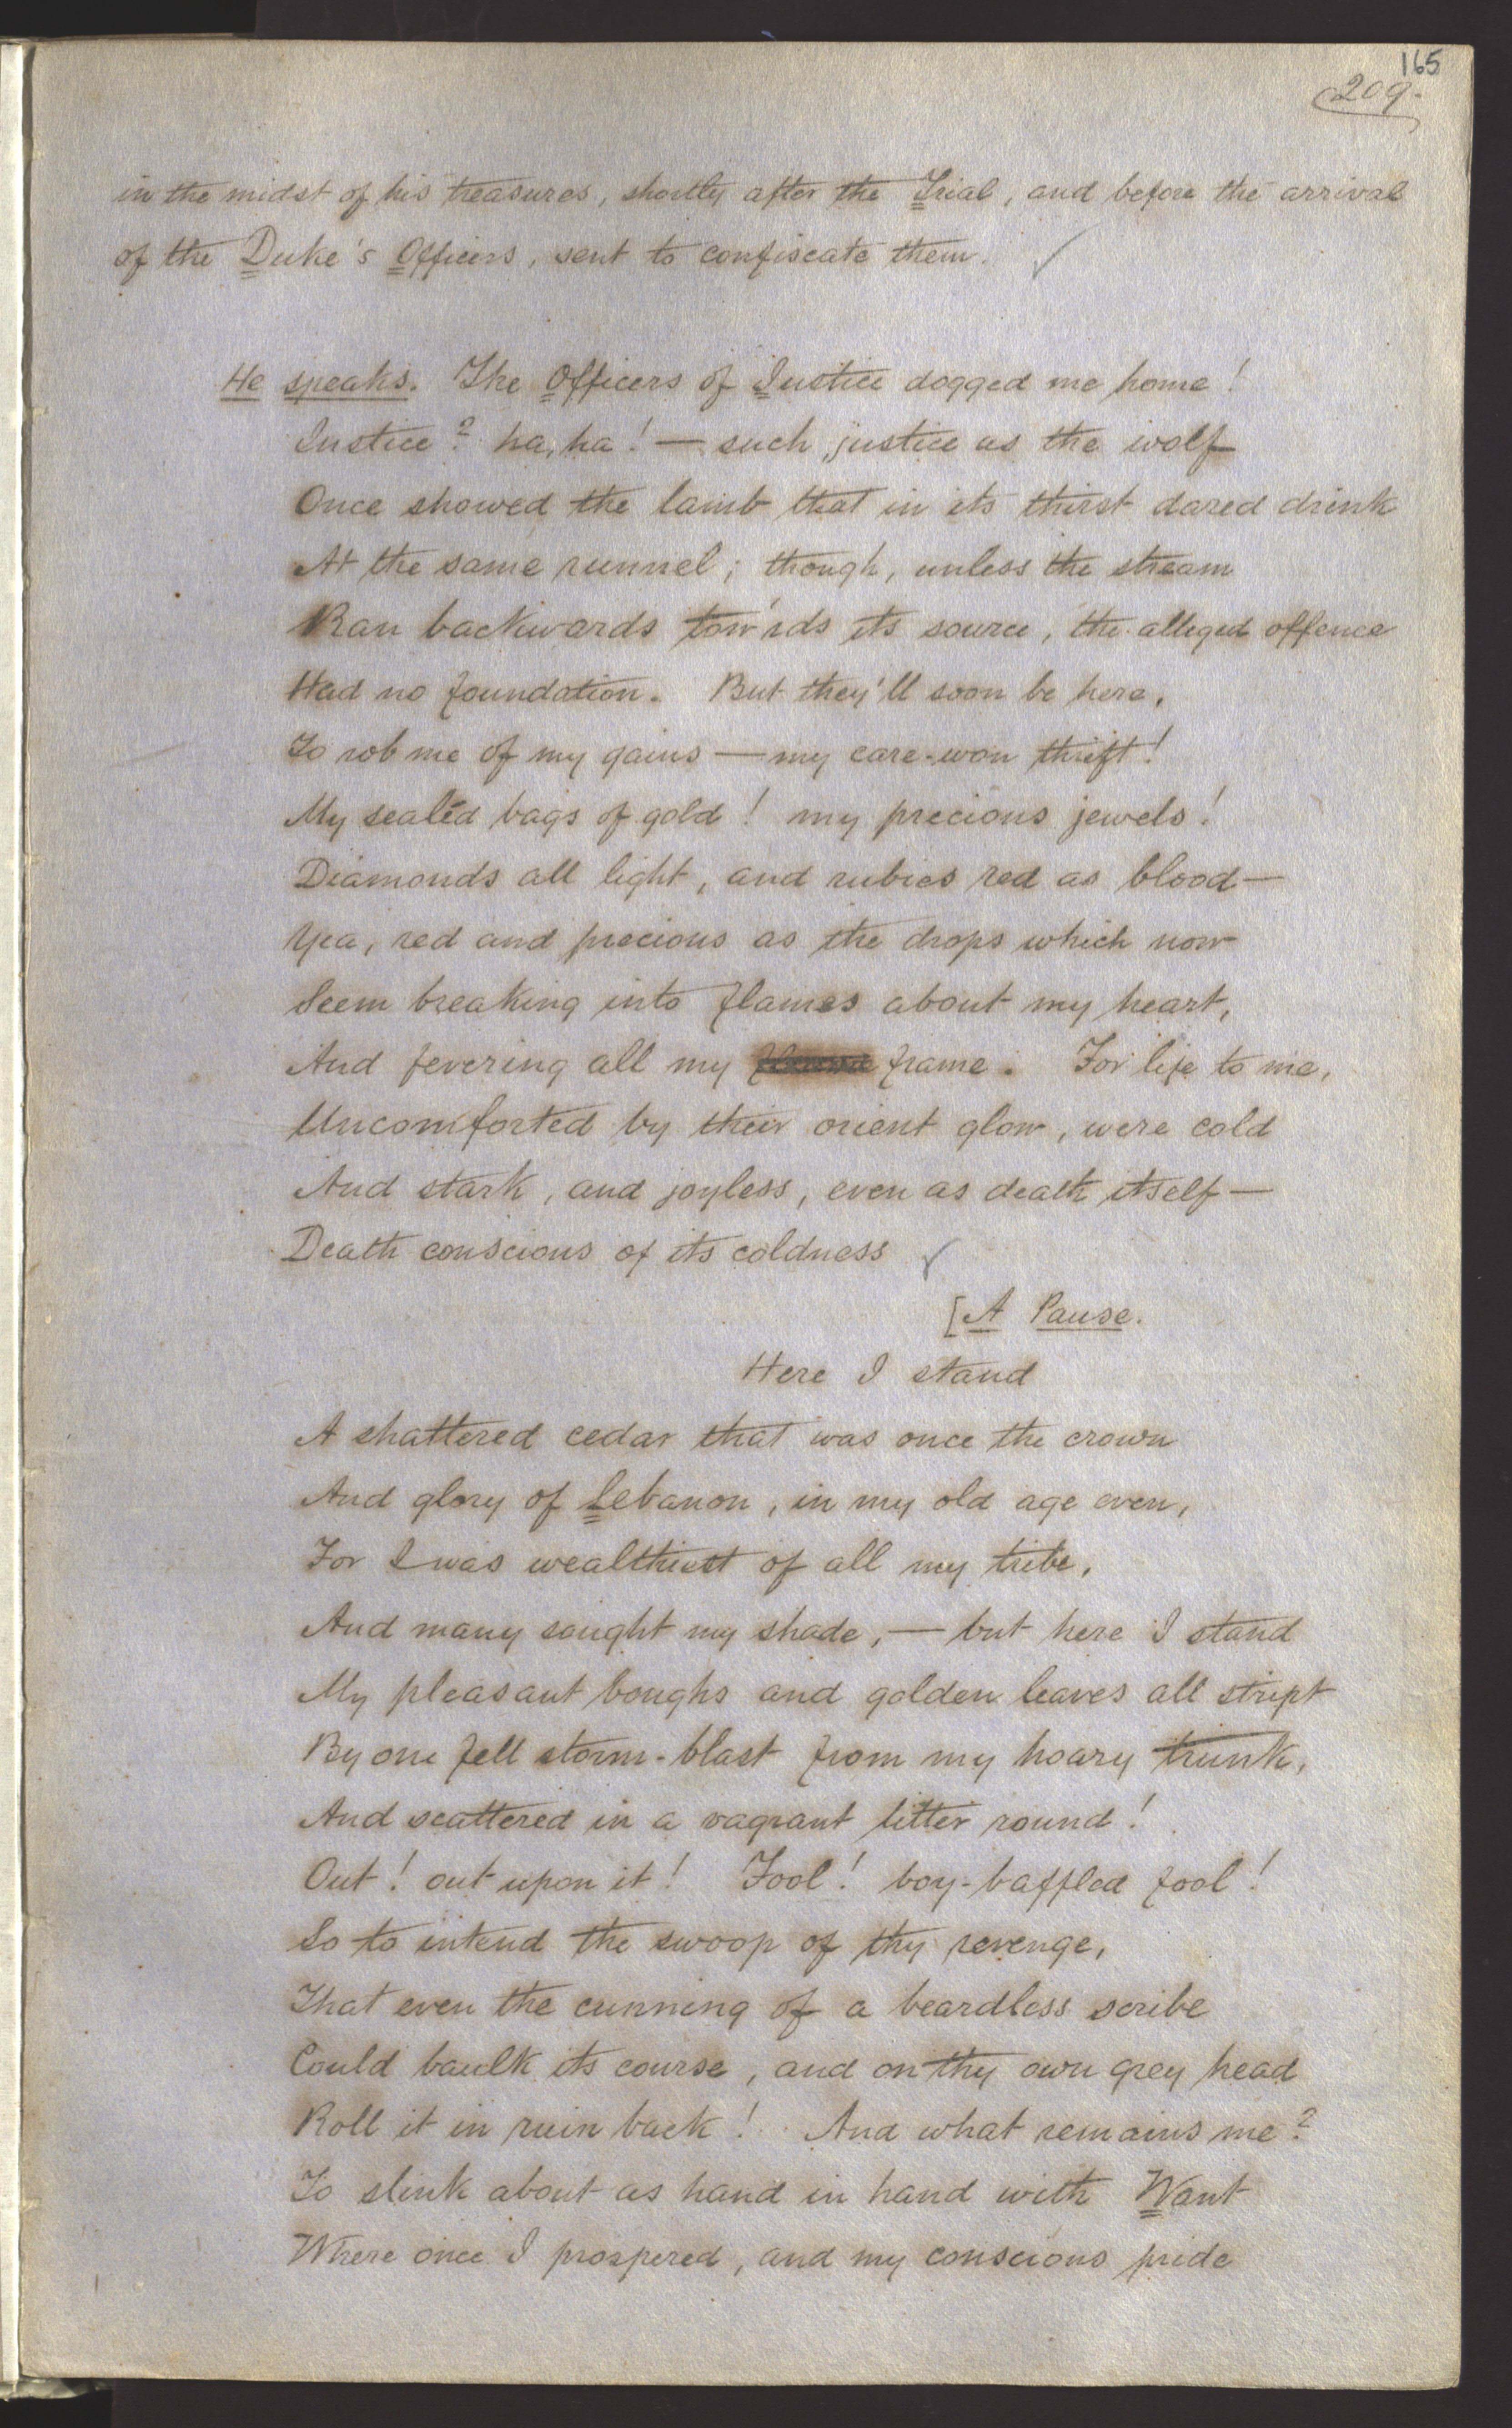 165
209.
in the midst of his treasures, shortly after the Trial, and before the arrival
of the Duke's Officers, sent to confiscate them.
He speaks. The Officers of Justice dogged me home!
Justice? ha, ha! — such justice as the wolf
Once showed the lamb that in its thirst dared drink
At the same runnel; though, unless the stream
Ran backwards tow'rds its source, the alleged offence
Had no foundation. But they'll soon be here,
To rob me of my gains — my care-won thrift!
My sealéd bags of gold! my precious jewels!
Diamonds all light, and rubies red as blood —
Yea, red and precious as the drops which now
Seem breaking into flames about my heart,
And fevering all my frame. For life to me,
Uncomforted by their orient glow, were cold
And stark, and joyless, even as death itself —
Death conscious of its coldness
[A Pause.
Here I stand
A shattered cedar that was once the crown
And glory of Lebanon, in my old age even,
For I was wealthiest of all my tribe,
And many sought my shade, — but here I stand
My pleasant boughs and golden leaves all stript
By one fell storm-blast from my hoary trunk,
And scattered in a vagrant litter round!
Out! out upon it! Fool! boy-baffled fool!
So to intend the swoop of thy revenge,
That even the cunning of a beardless scribe
Could baulk its course, and on thy own grey head
Roll it in ruin back! And what remains me?
To slink about as hand in hand with Want
Where once I prospered, and my conscious pride